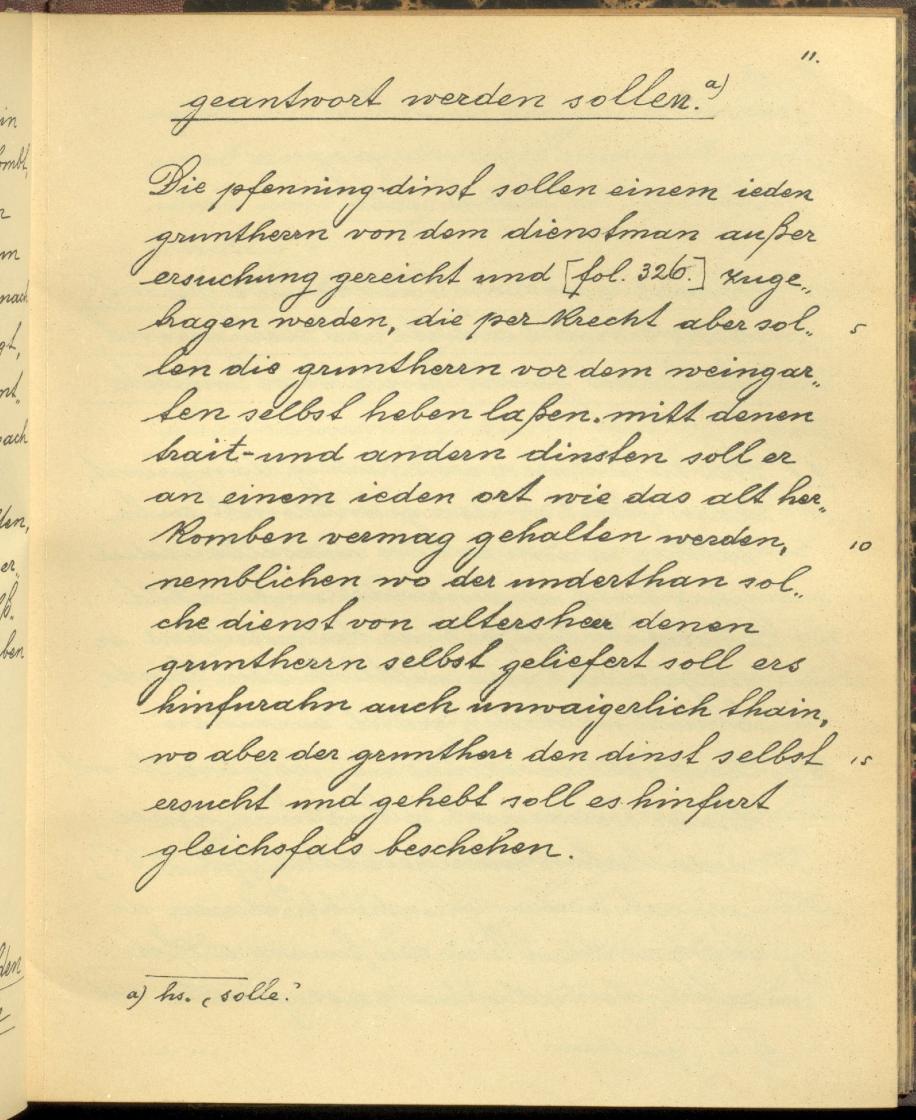 11.
geantwort werden sollen.a)
Die pfenning-dinst sollen einem ieden
gruntherrn von dem dienstman außer
ersuchung gereicht und [fol. 326.] zuge„
tragen werden, die perkrecht aber sol„ 5
len die gruntherrn vor dem weingar„
ten selbst heben laßen. mitt denen
trait-und andern dinsten soll er
an einem ieden ort wie das alt her„
komben vermag gehalten werden, 10
nemblichen wo der underthan sol„
che dienst von altersheer denen
gruntherrn selbst geliefert soll ers
hinfurahn auch unwaigerlich thain,
wo aber der gruntherr den dinst selbst 15
ersucht und gehebt soll es hinfurt
gleichsfals beschehen.
a) hs. ‚solle.‘